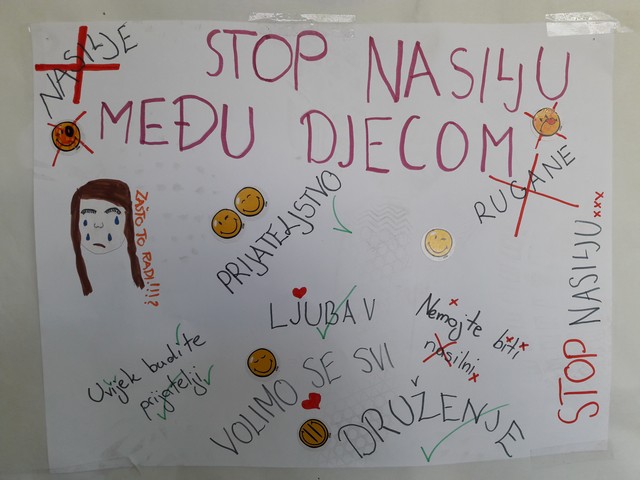 NASILJE
STOP NASILJU
MEĐU DJECOM
RUGANE
ZAŠTO TO RADI!!!?
PRIJATELJSTVO
STOP NASILJU xxx
LJUBAV
Nemojte biti
nasilni
Uvijek budite
prijatelji
VOLIMO SE SVI
DRUŽENJE